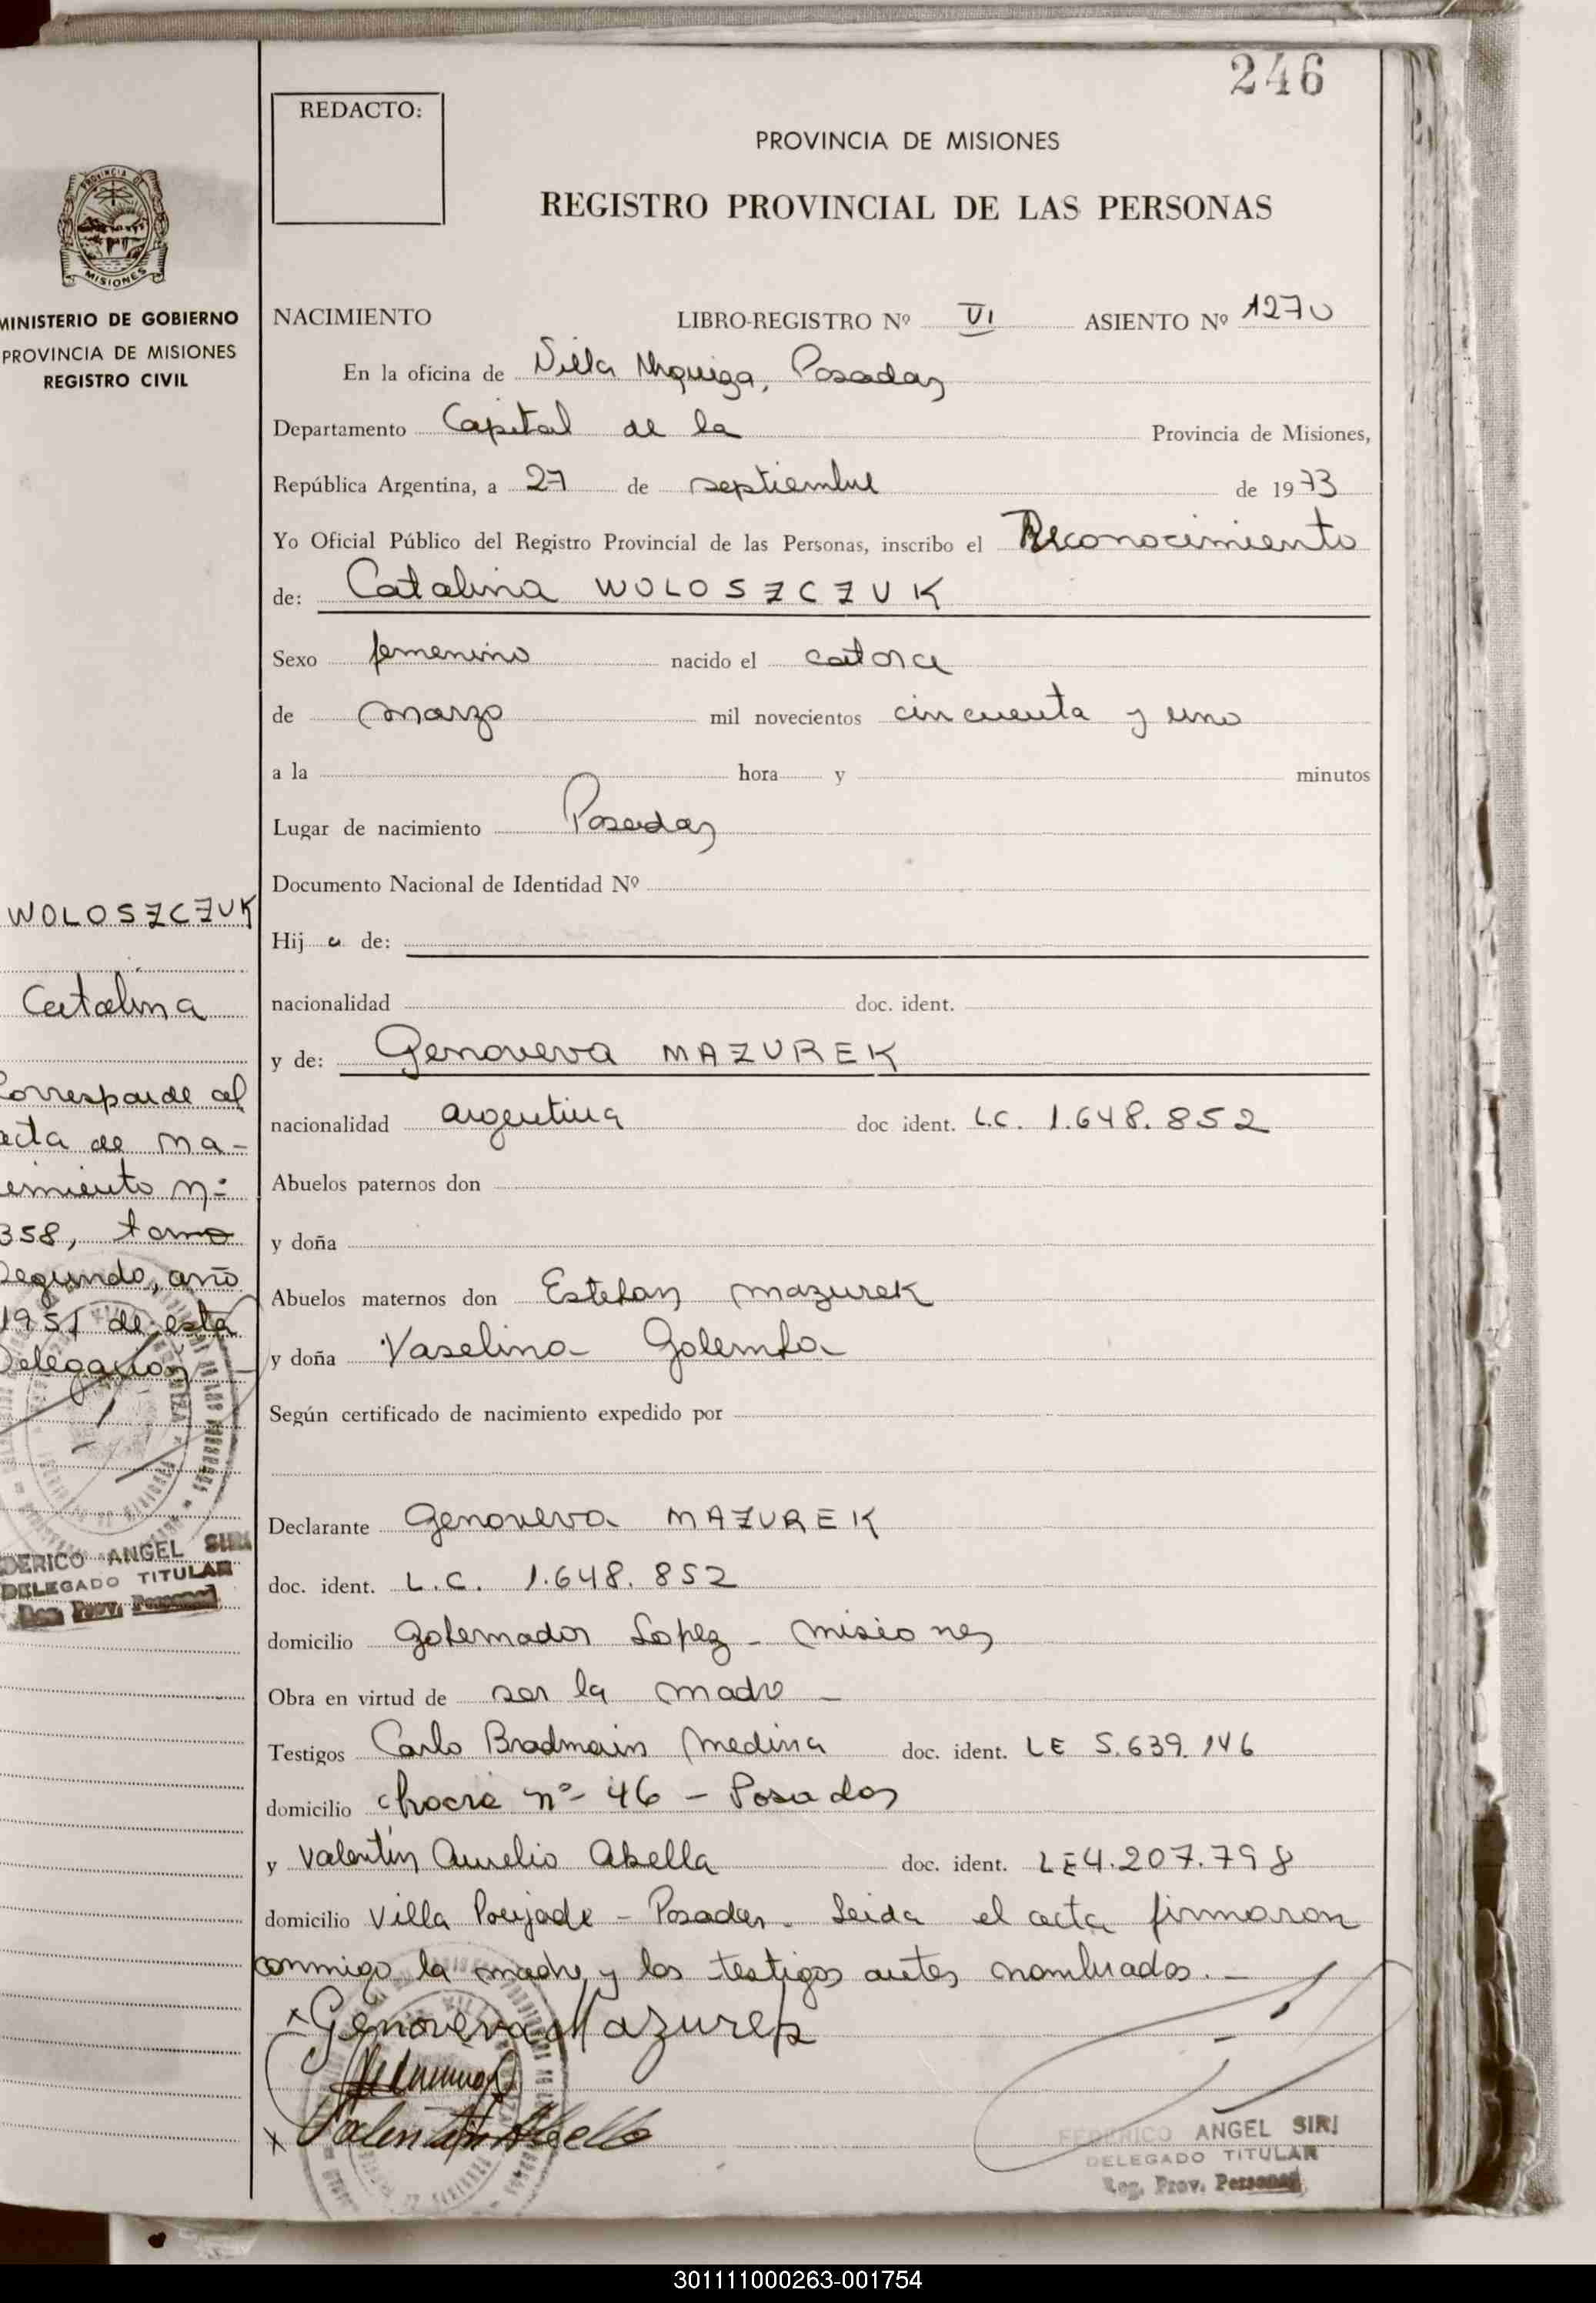 246
REDACTO:
PROVINCIA DE MISIONES
REGISTRO PROVINCIAL DE LAS PERSONAS
PROVINCIA DE
MISIONES
MINISTERIO DE GOBIERNO
PROVINCIA DE MISIONES
REGISTRO CIVIL
NACIMIENTO LIBRO-REGISTRO Nº VI ASIENTO Nº 1270
En la oficina de Villa Urquiza, Posadas
Departamento Capital de la Provincia de Misiones,
República Argentina, a 27 de septiembre de 1973
Yo Oficial Público del Registro Provincial de las Personas, inscribo el Reconocimiento
de: Catalina WOLOSZCZUK
Sexo femenino nacido el catorce
de marzo mil novecientos cincuenta y uno
a la hora y minutos
Lugar de nacimiento Posadas
Documento Nacional de Identidad Nº
Hij a de:
nacionalidad doc. ident.
y de: Genoveva MAZUREK
nacionalidad argentina doc ident. L.C. 1.648.852
Abuelos paternos don
y doña
Abuelos maternos don Esteban Mazurek
y doña Vaselina Golemba
Según certificado de nacimiento expedido por
Declarante Genoveva MAZUREK
doc. ident. L.C. 1.648.852
domicilio Gobernador Lopez - Misiones
Obra en virtud de ser la madre
Testigos Carlo Bradmain Medina doc. ident. LE 5.639.146
domicilio chacra nº 46 - Posadas
y Valentín Aurelio Abella doc. ident. LE 4.207.798
domicilio Villa Poujade - Posadas. Leida el acta firmaron
conmigo la madre y los testigos antes nombrados. -
x Genoveva Mazurek
x Valentín Abella
FEDERICO ANGEL SIRI
DELEGADO TITULAR
Reg. Prov. Personas
WOLOSZCZUK
Catalina
Corresponde al
acta de na-
cimiento nº
358, tomo
Segundo, año
1951 de esta
Delegación
DERICO ANGEL SIRI
DELEGADO TITULAR
Reg. Prov. Personas
301111000263-001754